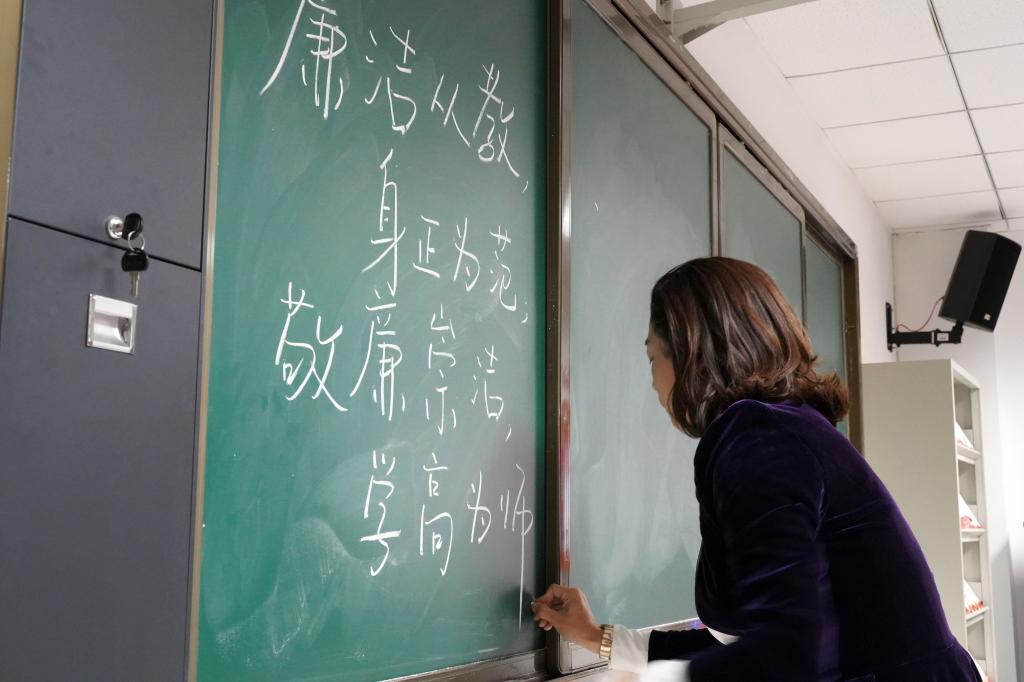 廉洁从教，
身正为范；
敬廉崇洁，
学高为师